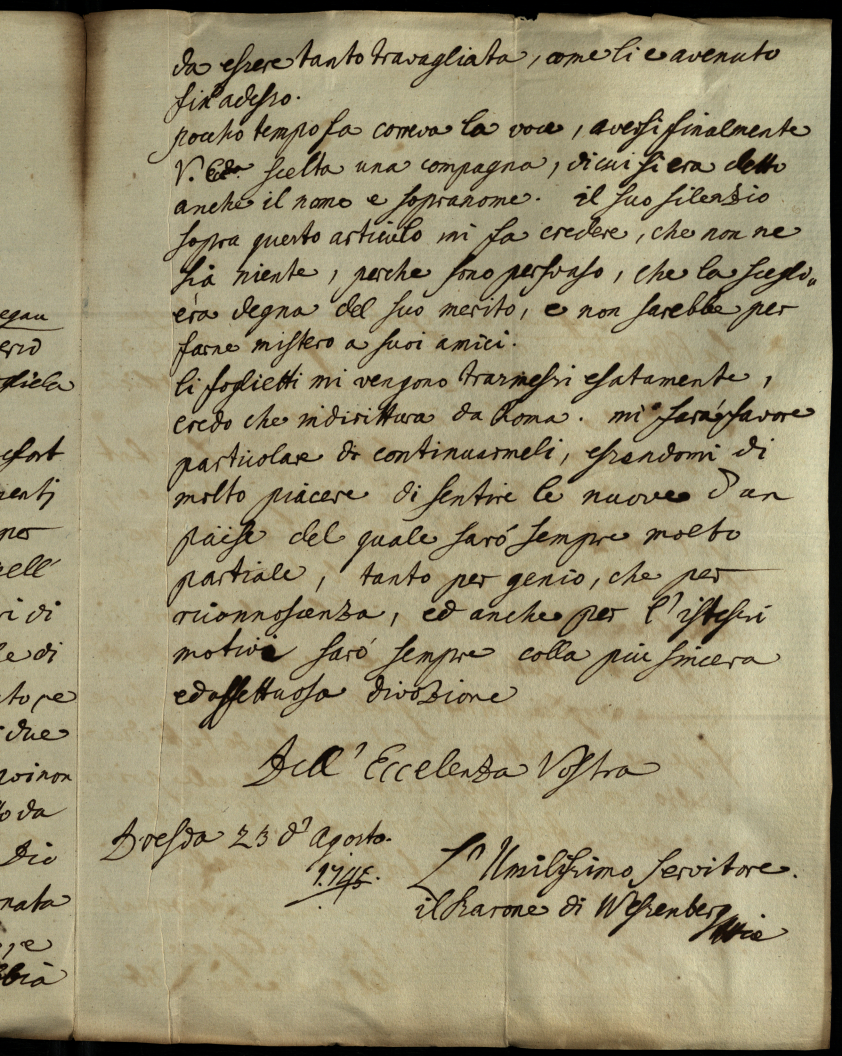 da essere tanto travagliata, come li e avenuto
fin adesso.
poccho tempo fa correva la voce, aversi finalmente
V. Ecc.za scelta una compagna, di cui si era detto
anche il nome e sopranome. il suo silenzio
sopra questo articulo mi fa credere, che non ne
sia niente, perche sono persuaso, che la scegli„
erà degna del suo merito, e non sarebbe per
farne mistero a suoi amici.
li foglietti mi vengono trasmessi esatamente,
credo che indirittura da Roma. mi farà favore
particolare di continuarmeli, essendomi di
molto piacere di sentire le nuove d'un
paese del quale saró sempre molto
partiale, tanto per genio, che per
riconnoscenza, ed anche per l'istessi
motivi saró sempre colla piu sincera
ed affettuosa divozione
Dell' Eccelenza Vostra
Dresda 23 d' Agosto.
L'Umilissimo servitore.
il Barone di Wessenberg
egau
erio
ri di
le di
due
to da
Dio
nata
, e
bbia